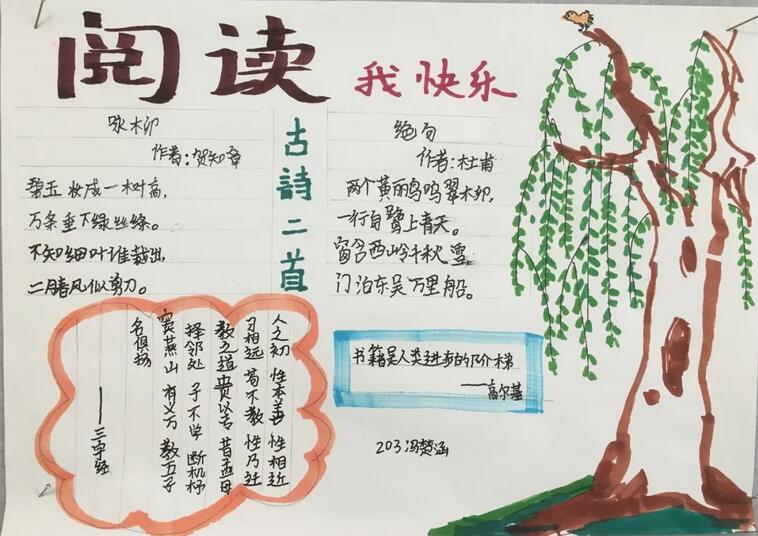 阅读
我快乐
咏柳
作者:贺知章
碧玉妆成一树高,
万条垂下绿丝绦。
不知细叶谁裁出,
二月春风似剪刀。
古詩二首
绝句
作者:杜甫
两个黄丽鸟鸣翠柳,
一行白鹭上青天。
窗含西岭千秋雪
门泊东吴万里船。
人之初 性本善 性相近
习相远 苟不教 性乃迁
教之道 贵以专 昔孟母
择邻处 子不学 断机杼
窦燕山 有义方 教五子
名俱扬
——三字经
书籍是人类进步的阶梯
——高尔基
203冯楚涵